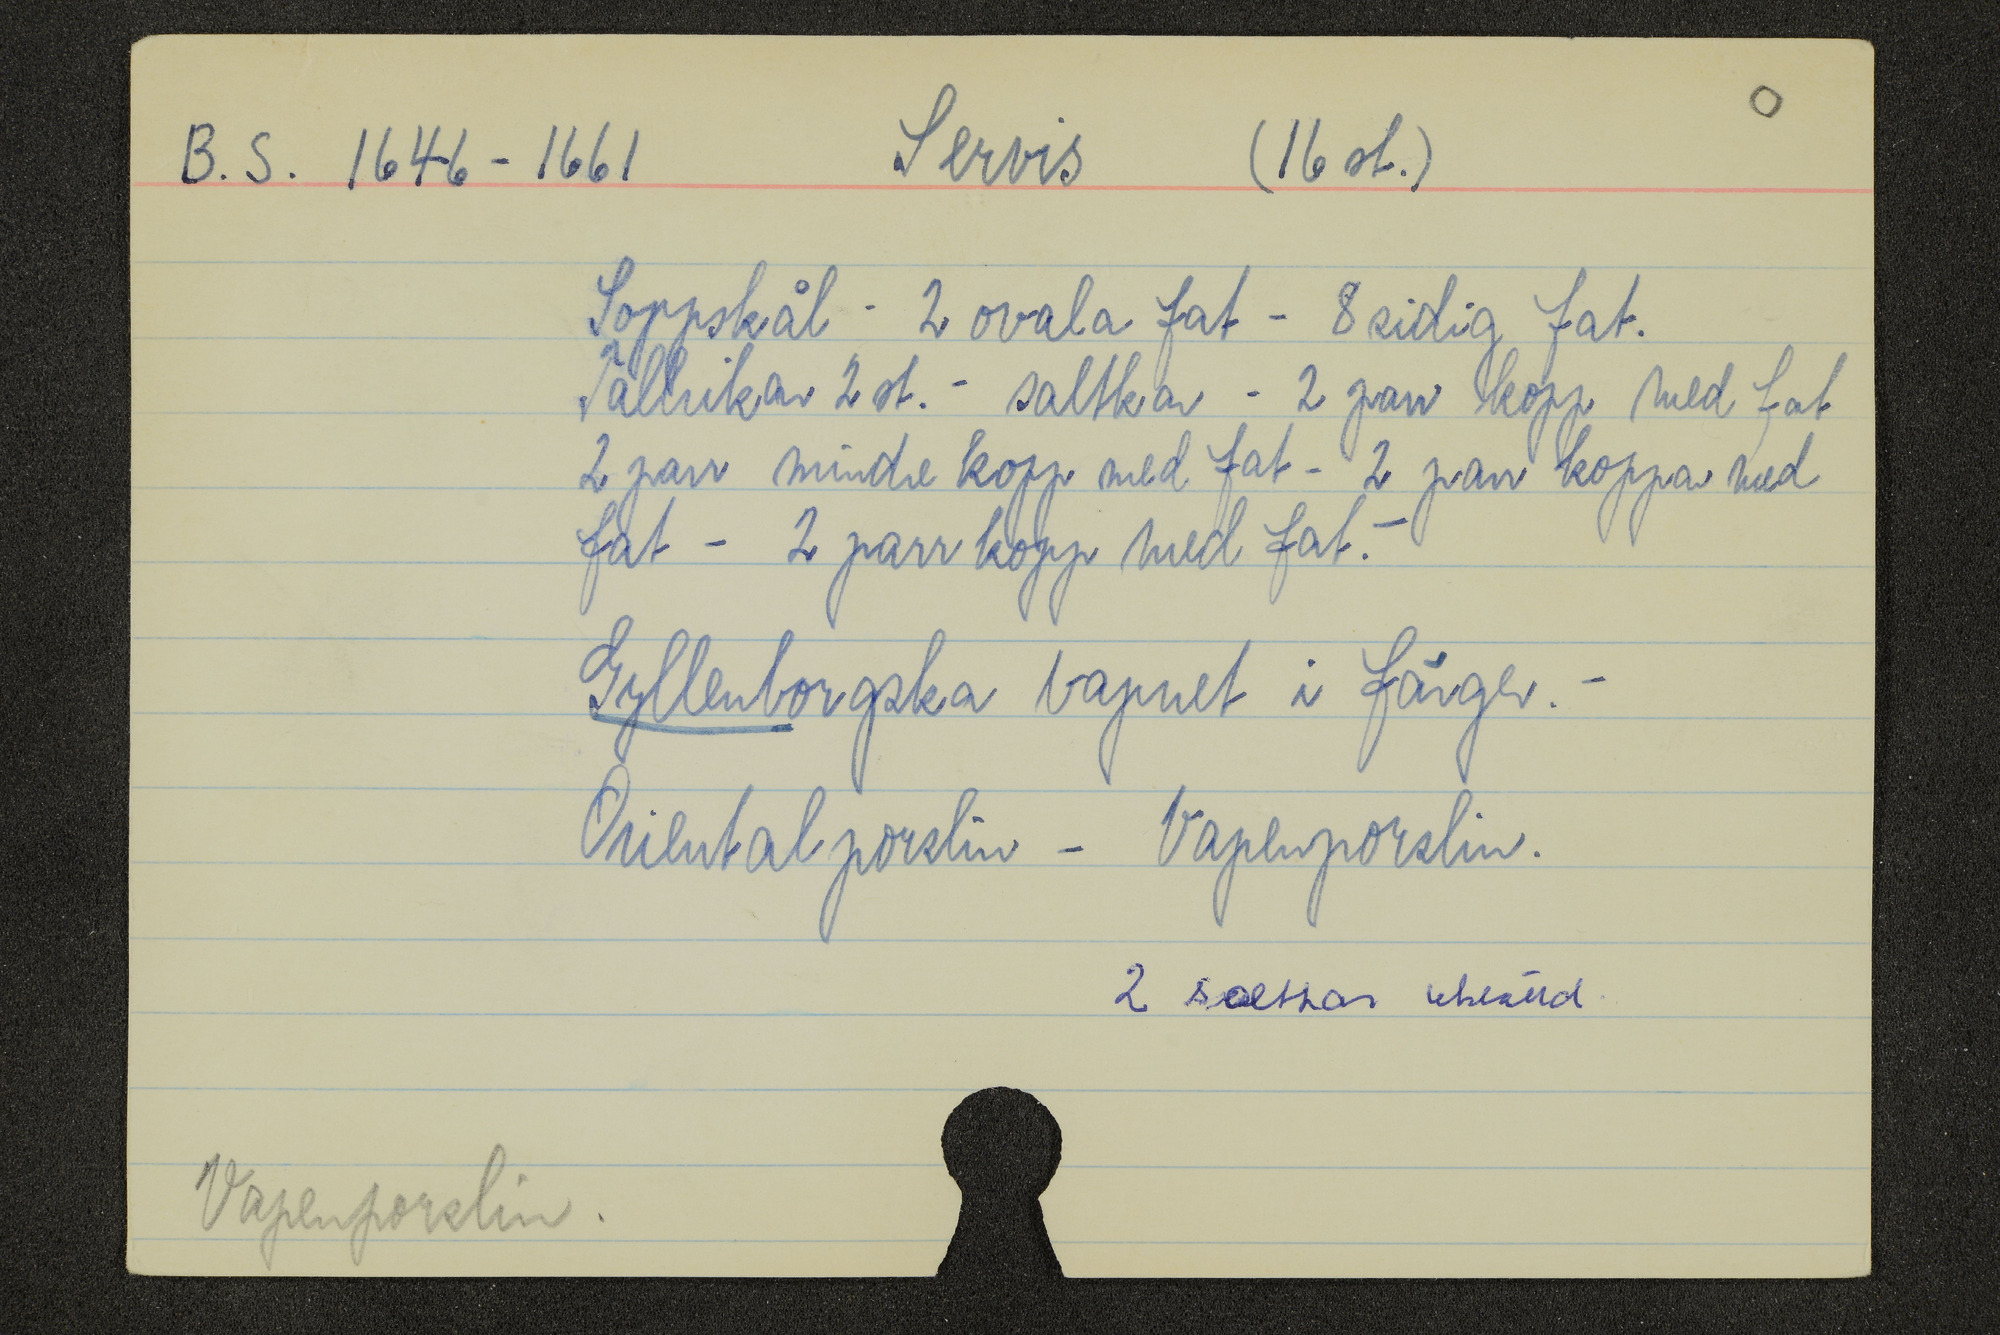 B.S. 1646-1661 Servis (16 st.)
Soppskål - 2 ovala fat - 8 sidig fat.
Tallrikar 2 st. - saltkar - 2 parr kopp med fat
2 parr mindre kopp med fat - 2 parr koppar med
fat - 2 parr kopp med fat. -
Gyllenborgska vapnet i färger. -
Oriental porslin - Vapenporslin.
2 saltkar
Vapenporslin.